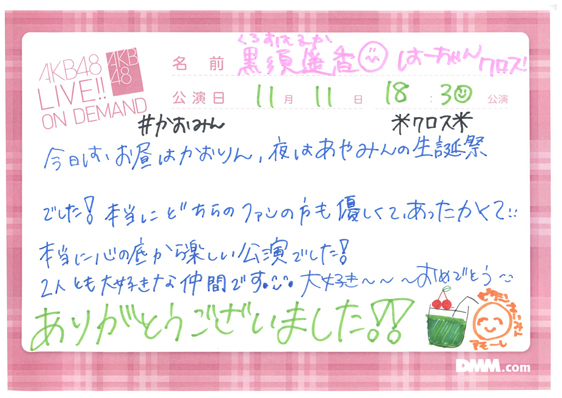 AKB48
LIVE!!
ON DEMAND
AKB
48
名前 黒須遥香 はーちゃん クロス!
くろすはるか
公演日 11月 11日 18:30 公演
#かおみん *クロス*
今日は、お昼はかおりん、夜はあやみんの生誕祭
でした! 本当にどちらのファンの方も優しくて、あったかくて
本当に心の底から楽しい公演でした!
2人とも大好きな仲間です 大好き〜〜〜おめでとう
ありがとうございました!!
DMM.com